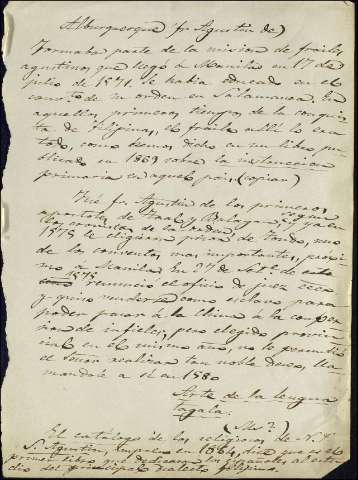 Alburquerque (fr Agustin de)
Formaba parte de la mision de frailes
agustinos que llegó á Manila en 17 de
julio de 1571. Se habia educado en el
convto. de su orden en Salamanca. En
aquellos primeros tiempos de la conquis
ta de Filipinas, el fraile allí lo era
todo, como hemos dicho en un libro pu
blicado en 1869 sobre la instruccion
primaria en aquel pais. (copiar)
Fué fr. Agustin de los primeros
apostoles de Taal y Balayan, segun
las cronicas de la orden, y ya en
1575 le eligieron prior de Tondo, uno
de los conventos mas importantes, proxi
mo á Manila. En 17 de Set.e de este
1575 renunció el oficio de juez
y quiso venderse como esclavo para
poder pasar á la China á la conver
sion de infieles, pero elegido provin
cial en el mismo año, no le permitió
el Señor realizar tan noble deseo, lla
mandole a sí en 1580
Arte de la lengua
tagala.
(Ms?)
El catálogo de los religiosos de N. P.
S. Agustin, impreso en 1864, dice que es el
primer libro que dedicaron los españoles al estu
dio del principal dialecto filipino.